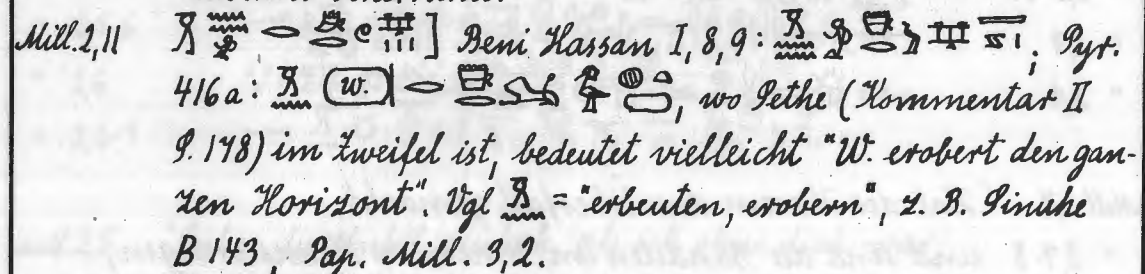 Mill. 2,11 ] Beni Hassan I, 8, 9: , Pyr.
416 a: (W.) , wo Sethe (Kommentar II
S. 178) im Zweifel ist, bedeutet vielleicht "W. erobert den gan-
zen Horizont". Vgl = "erbeuten, erobern", z. B. Sinuhe
B 143, Pap. Mill. 3,2.